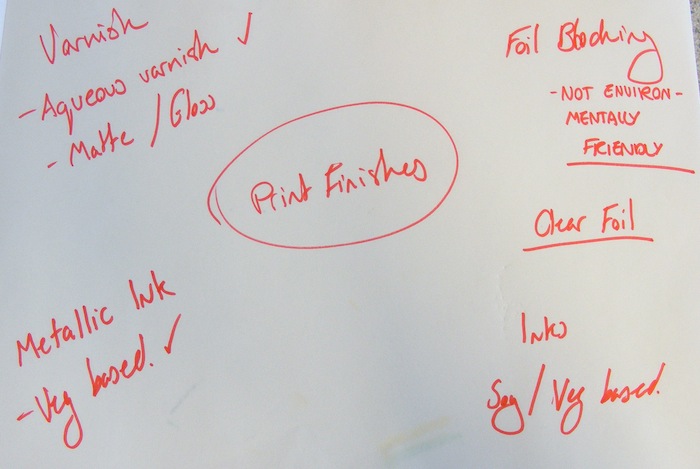 Varnish
- Aqueous varnish ✓
- Matte / Gloss
Foil Blocking
- NOT ENVIRON -
MENTALLY
FRIENDLY
Print Finishes
Clear Foil
Metallic Ink
- Veg based. ✓
Inks
Soy / Veg based.